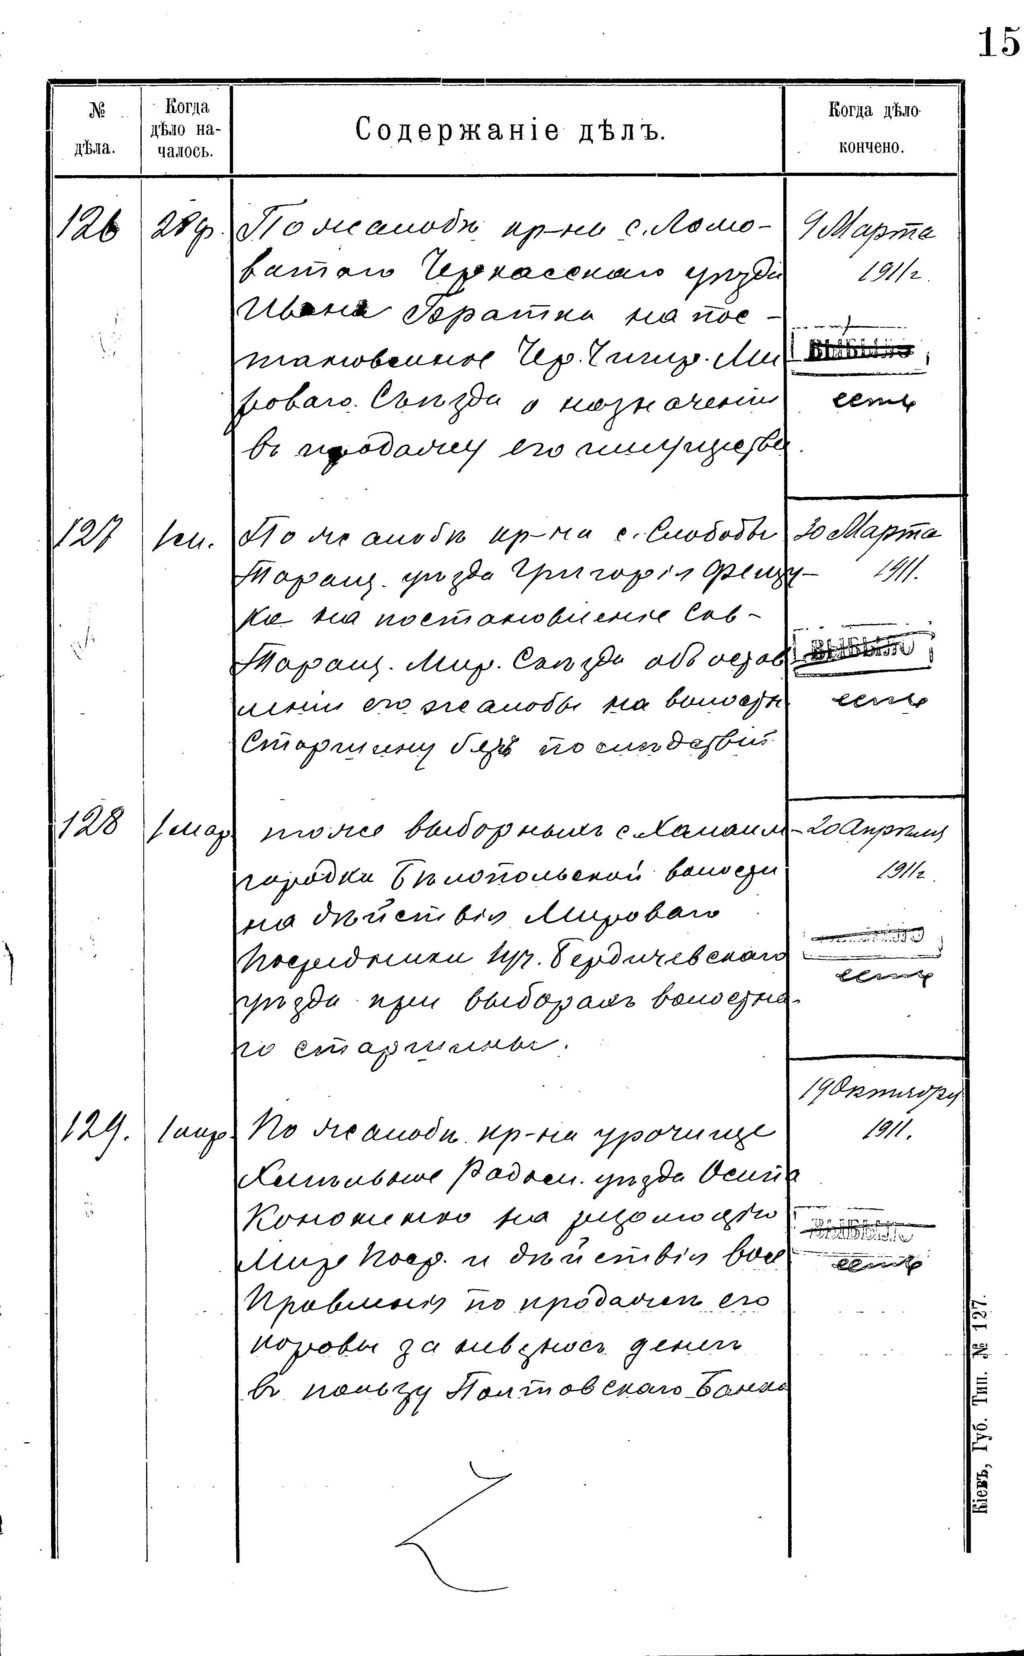 15
№ дѣла.
Когда дѣло началось.
Содержаніе дѣлъ.
Когда дѣло кончено.
126 28 ф. По жалобѣ кр-на с. Ломо- 9 Марта
ватаго Черкасскаго уѣзда 1911 г.
Ивана Братка на пос-
тановленіе Чер. Чигир. Ми ВЫБЫЛО
рового Съѣзда о назначеніи есть
въ продажу его имущества.
127 1 м. По жалобѣ кр-на с. Слободы 30 Марта
Таращ. уѣзда Григорія Фещу- 1911.
ка на постановленіе Сав-
Таращ. Мир. Съѣзда объ остав ВЫБЫЛО
леніи его жалобы на волостн есть
Старшину безъ послѣдствій
128 1 мар тоже выборныхъ с. Халаим- 20 Апрѣля
городка Бѣлопольской волости 1911 г.
на дѣйствія Мироваго
Посредника 1 уч. Бердичевскаго есть
уѣзда при выборахъ волостна-
го старшины.
19 Октября
129. 1 мар По жалобѣ кр-на урочище 1911.
Хмѣльное Радом. уѣзда Осипа
Кононенко на резолюцію ВЫБЫЛО
Мир Поср. и дѣйствія Вол есть
Правленія по продажѣ его
коровы за невзносъ денегъ
въ пользу Полтовскаго Банка
Кіевъ, Губ. Тип. № 127.